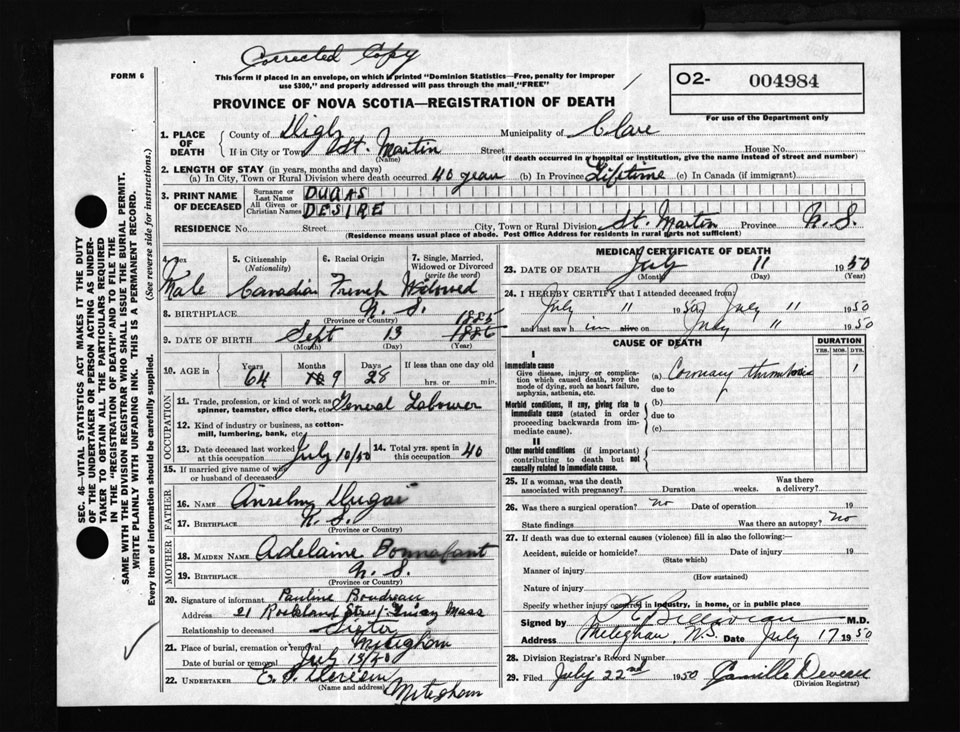 Corrected Copy
FORM 6
This form if placed in an envelope, on which is printed "Dominion Statistics—Free, penalty for improper
use $300," and properly addressed will pass through the mail "FREE"
O2- 004984
For use of the Department only
PROVINCE OF NOVA SCOTIA—REGISTRATION OF DEATH
1. PLACE OF DEATH
County of Digby Municipality of Clare
If in City or Town St. Martin Street House No.
(Name) (If death occurred in a hospital or institution, give the name instead of street and number)
2. LENGTH OF STAY (in years, months and days)
(a) In City, Town or Rural Division where death occurred 40 year (b) In Province Lifetime (c) In Canada (if immigrant)
3. PRINT NAME OF DECEASED
Surname or Last Name DUGAS
All Given or Christian Names DESIRE
RESIDENCE No. Street City, Town or Rural Division St. Martin Province N.S.
(Residence means usual place of abode. Post Office Address for residents in rural parts not sufficient)
4. Sex Male
5. Citizenship (Nationality) Canadian
6. Racial Origin French
7. Single, Married, Widowed or Divorced (write the word) Widowed
8. BIRTHPLACE N.S.
(Province or Country)
9. DATE OF BIRTH Sept 13 1885 1886
(Month) (Day) (Year)
10. AGE in Years 64 Months 10 9 Days 28 If less than one day old hrs. or min.
OCCUPATION
11. Trade, profession, or kind of work as spinner, teamster, office clerk, etc. General Labourer
12. Kind of industry or business, as cotton-mill, lumbering, bank, etc.
13. Date deceased last worked at this occupation July 10/50
14. Total yrs. spent in this occupation 40
15. If married give name of wife or husband of deceased
FATHER
16. NAME Anselm Dugas
17. BIRTHPLACE N.S.
(Province or Country)
MOTHER
18. MAIDEN NAME Adelaine Bonnafant
19. BIRTHPLACE N.S.
(Province or Country)
20. Signature of informant Pauline Boudreau
Address 21 Rockland Street Quincy Mass
Relationship to deceased Sister
21. Place of burial, cremation or removal Meteghan
Date of burial or removal July 13/50
22. UNDERTAKER
(Name and address) Meteghan
MEDICAL CERTIFICATE OF DEATH
23. DATE OF DEATH July 11 1950
(Month) (Day) (Year)
24. I HEREBY CERTIFY that I attended deceased from
July 11 1950 July 11 1950
and last saw h im alive on July 11 1950
CAUSE OF DEATH
DURATION
YRS. MOS. DYS.
I
Immediate cause
Give disease, injury or complication which caused death, not the mode of dying, such as heart failure, asphyxia, asthenia, etc.
(a) Coronary thrombosis 1
due to
Morbid conditions, if any, giving rise to immediate cause (stated in order proceeding backwards from immediate cause).
(b)
due to
(c)
II
Other morbid conditions (if important) contributing to death but not causally related to immediate cause.
25. If a woman, was the death associated with pregnancy? Duration weeks. Was there a delivery?
26. Was there a surgical operation? no Date of operation 19
State findings Was there an autopsy? no
27. If death was due to external causes (violence) fill in also the following:
Accident, suicide or homicide? Date of injury 19
(State which)
Manner of injury
(How sustained)
Nature of injury
Specify whether injury occurred in industry, in home, or in public place
Signed by M.D.
Address Meteghan, N.S. Date July 17 1950
28. Division Registrar's Record Number
29. Filed July 22nd 1950 Camille Deveau
(Division Registrar)
SEC. 46—VITAL STATISTICS ACT MAKES IT THE DUTY
OF THE UNDERTAKER OR PERSON ACTING AS UNDER-
TAKER TO OBTAIN ALL THE PARTICULARS REQUIRED
IN THE "REGISTRATION OF DEATH" AND TO FILE THE
SAME WITH THE DIVISION REGISTRAR WHO SHALL ISSUE THE BURIAL PERMIT.
WRITE PLAINLY WITH UNFADING INK. THIS IS A PERMANENT RECORD.
Every item of information should be carefully supplied. (See reverse side for instructions.)